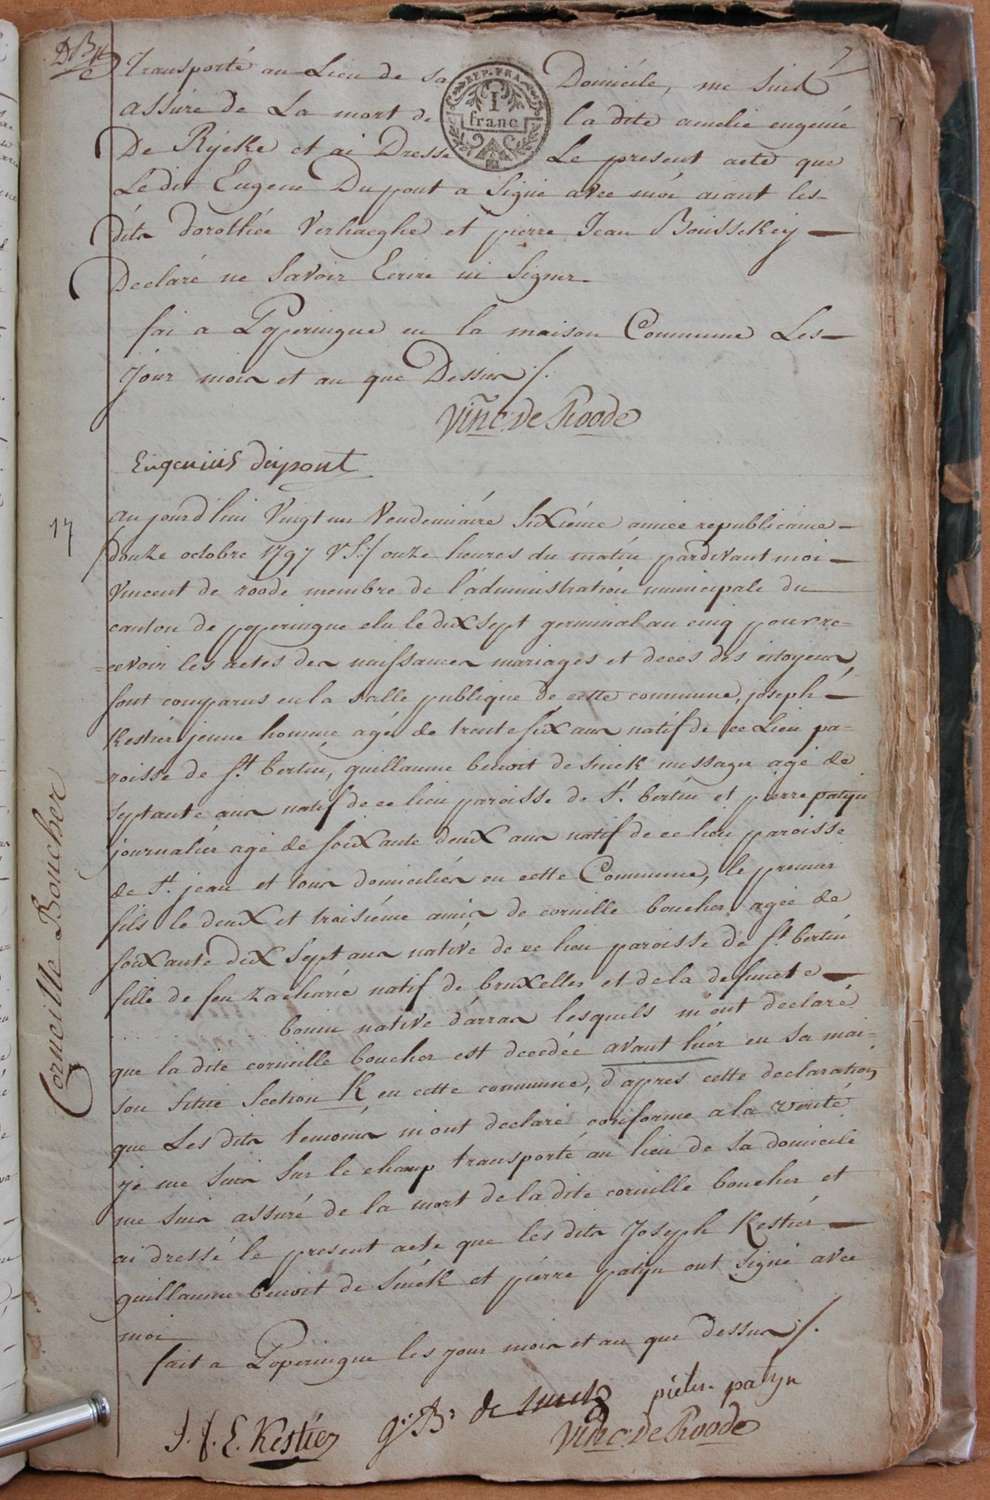 7
Transporté au Lieu de sa Domicile, me suis
assuré de La mort de la dite amelie eugenie
De Ryeke et ai Dressé Le present acte que
Le dit Eugene Dupont a Signé avec moi aiant les-
dits dorothée Verhaeghe et pierre Jean Boussekey —
Declaré ne Savoir Ecrire ni Signer.
REP. FRA.
1
franc
fai a Poperingue en la maison Commune Les —
Jour mois et an que Dessus /.
Vinc. De Roode
Eugeniús dupont
17
Corneille Boucher
aujourd'hui Vingt un Vendemiaire Sixiéme année republicaine —
douze octobre 1797 V.S./ onze heures du matin pardevant moi —
Vincent de roode membre de l'administration municipale du
canton de poperingue elu le dix sept germinal an cinq pour re-
-cevoir les actes des naissances mariages et deces des citoyens,
sont comparus en la salle publique de cette commune, joseph —
Kestier jeune homme agé de trente six ans natif de ce Lieu pa-
-roisse de St bertin, guillaume benoit de smek messager agé de
septante ans natif de ce lieu paroisse de St bertin et pierre patijn
journalier agé de soixante deux ans natif de ce lieu paroisse
de St jean et tous domiciliés en cette Commune, le premier
fils le deux et troisiéme amis de corneille boucher agée de
soixante dix sept ans native de ce lieu paroisse de St bertin
fille de feu Zacharie natif de bruxelles et de la defuncte —
. . . . bonin native d'arras lesquels m'ont declaré
que la dite corneille boucher est decedée avant hier en sa mai-
son située Section K, en cette commune, d'après cette declaration
que Les dits temoins m'ont declaré conforme a la verité
je me suis sur le champ transporté au lieu de sa domicile
me suis assuré de la mort de la dite corneille boucher et
ai dressé le present acte que les dits Joseph Kestier —
guillaume benoit de smek et pierre patijn ont signé avec
moi
fait a Poperingue les jour mois et an que dessus /.
J. f. E. Kestier g: B: de smek pieter patyn
Vinc. De Roode